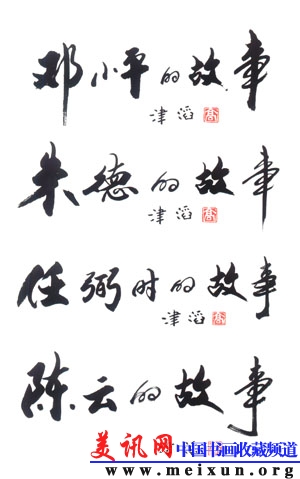 邓小平的故事
津滔
朱德的故事
津滔
任弼时的故事
津滔
陈云的故事
美讯网 中国书画收藏频道
www.meixun.org